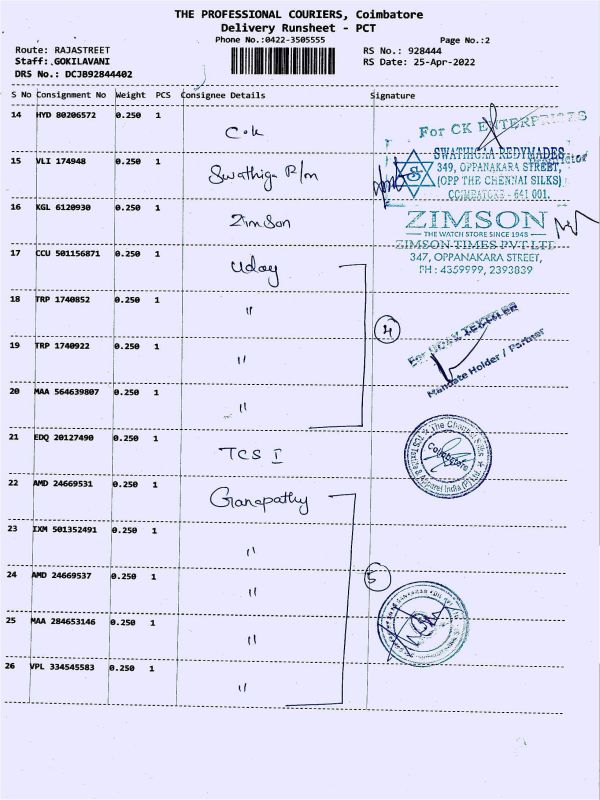 THE PROFESSIONAL COURIERS, Coimbatore
Delivery Runsheet - PCT
Phone No.:0422-3505555 Page No.:2
Route: RAJASTREET RS No.: 928444
Staff: GOKILAVANI RS Date: 25-Apr-2022
DRS No.: DCJB92844402
S No Consignment No Weight PCS Consignee Details Signature
14 HYD 80206572 0.250 1 C.K
For CK ENTERPRISES
15 VLI 174948 0.250 1 Swathiga R/m
SWATHIGAA REDYMADES
349, OPPANAKARA STREET,
(OPP THE CHENNAI SILKS)
COIMBATORE - 641 001.
16 KGL 6120930 0.250 1 Zimson
ZIMSON
THE WATCH STORE SINCE 1948
ZIMSON TIMES PVT LTD
347, OPPANAKARA STREET,
PH : 4359999, 2393839
17 CCU 501156871 0.250 1 Uday
18 TRP 1740852 0.250 1 "
4
19 TRP 1740922 0.250 1 "
For UDAY
Mandate Holder / Partner
20 MAA 564639807 0.250 1 "
21 EDQ 20127490 0.250 1 TCS I
The Chennai Silks
Coimbatore
22 AMD 24669531 0.250 1 Ganapathy
23 IXM 501352491 0.250 1 "
24 AMD 24669537 0.250 1 "
5
25 MAA 284653146 0.250 1 "
26 VPL 334545583 0.250 1 "